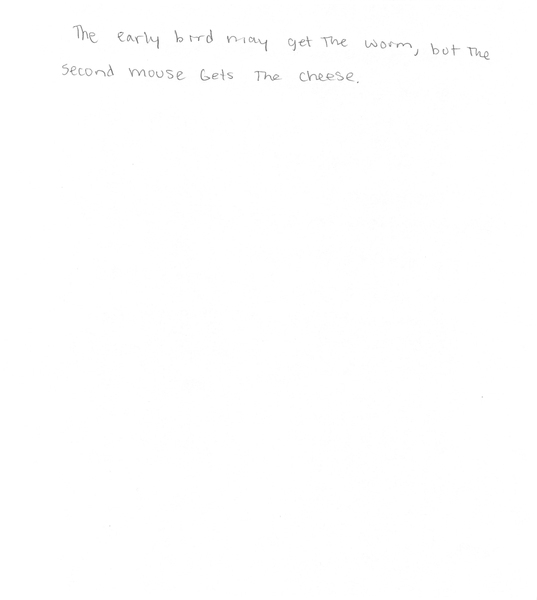 The early bird may get The worm, but The
second mouse Gets The cheese.